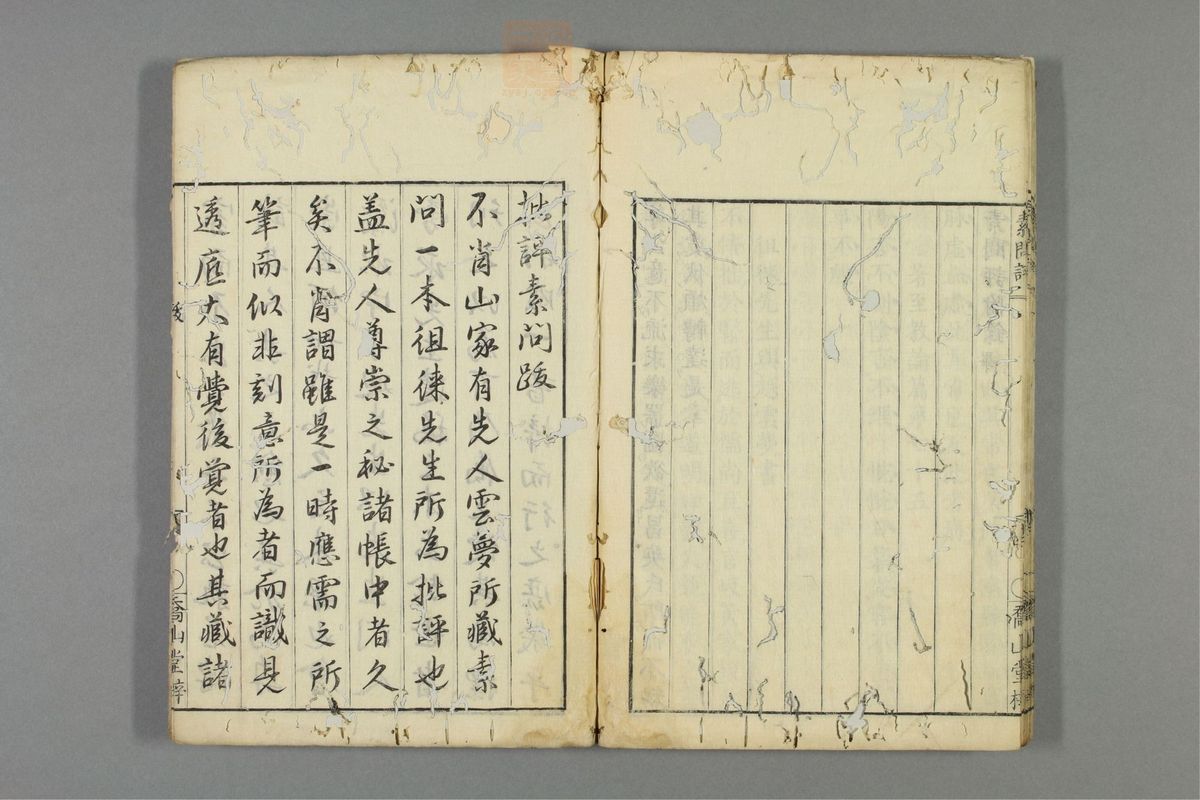 素問評
喬山堂梓
批評素問跋
不肖山家有先人雲夢所藏素
問一本徂徠先生所為批評也
盖先人尊崇之秘諸帳中者久
矣不肖謂雖是一時應需之所
筆而似非刻意所為者而識見
透底大有覺後覚者也其藏諸
跋
喬山堂梓